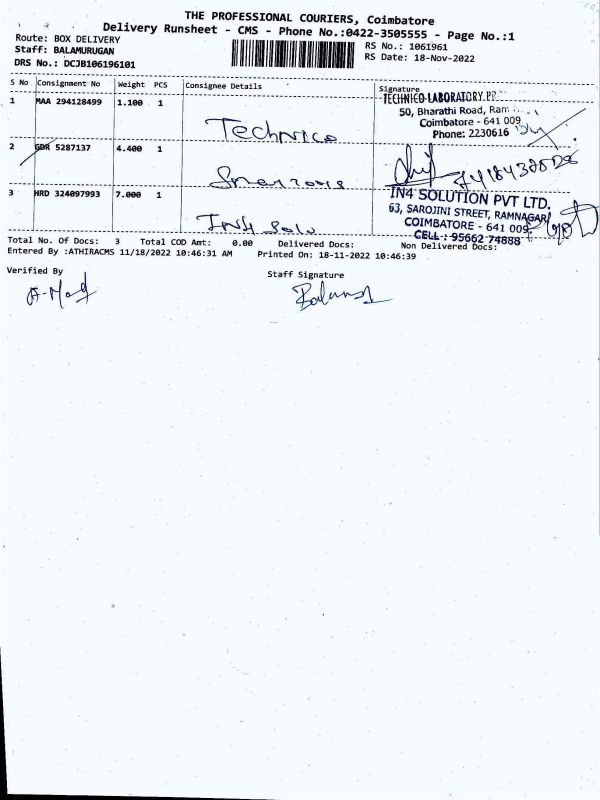 THE PROFESSIONAL COURIERS, Coimbatore
Delivery Runsheet - CMS - Phone No.:0422-3505555 - Page No.:1
Route: BOX DELIVERY
Staff: BALAMURUGAN
DRS No.: DCJB106196101
RS No.: 1061961
RS Date: 18-Nov-2022
S No Consignment No Weight PCS Consignee Details Signature
1 MAA 294128499 1.100 1 Technico
TECHNICO LABORATORY
50, Bharathi Road, Ram
Coimbatore - 641 009
Phone: 2230616
2 GBR 5287137 4.400 1
3 HRD 324097993 7.000 1 IN4 Solu
IN4 SOLUTION PVT LTD.
63, SAROJINI STREET, RAMNAGAR
COIMBATORE - 641 009
CELL : 95662 74888
Total No. Of Docs: 3 Total COD Amt: 0.00 Delivered Docs: Non Delivered Docs:
Entered By :ATHIRACMS 11/18/2022 10:46:31 AM Printed On: 18-11-2022 10:46:39
Verified By
Staff Signature